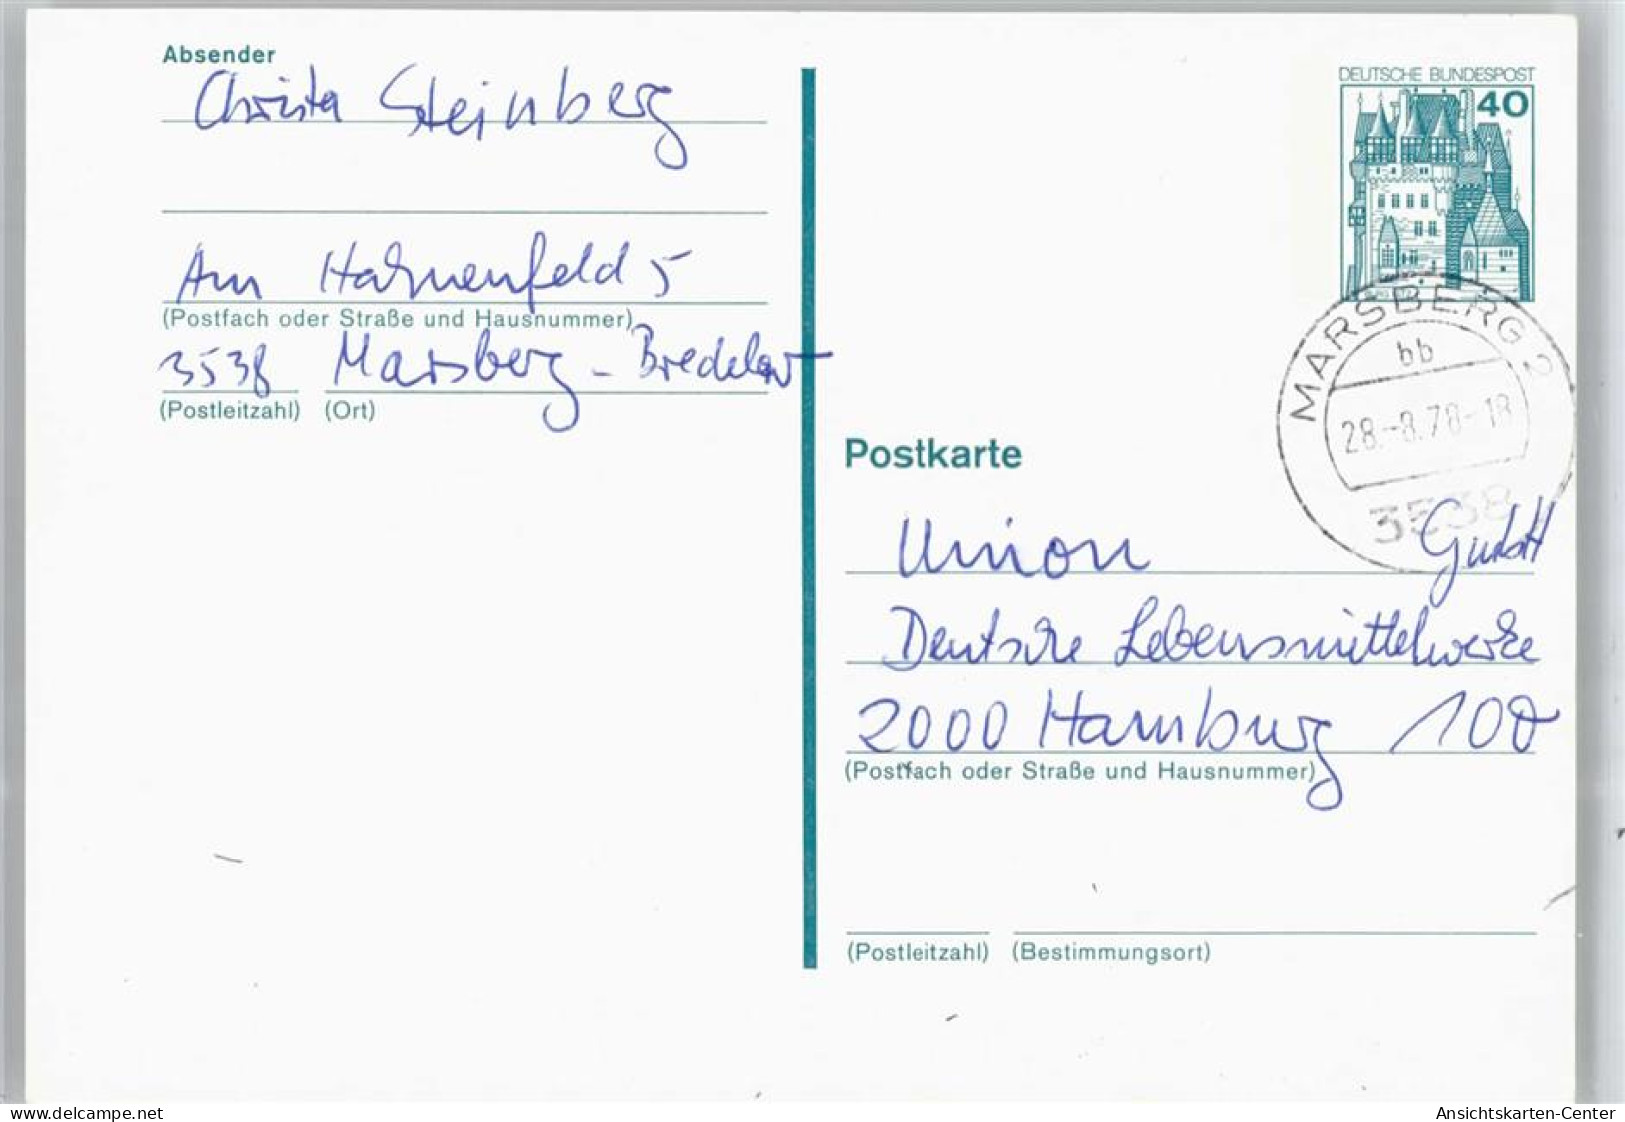 Absender
Christa Steinberg
Am Hahnenfeld 5
(Postfach oder Straße und Hausnummer)
3538 Marsberg - Bredelar
(Postleitzahl) (Ort)
DEUTSCHE BUNDESPOST
40
MARSBERG 2
bb
28.-8.78-18
3538
Postkarte
Union GmbH
Deutsche Lebensmittelwerke
2000 Hamburg 100
(Postfach oder Straße und Hausnummer)
(Postleitzahl) (Bestimmungsort)
www.delcampe.net
Ansichtskarten-Center